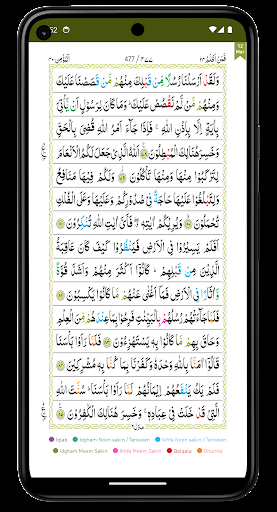 فَمَنْ اَظْلَمُ ٢٤
477 / ٤٧٧
اَلْمُؤْمِن ٤٠
12
Mar
وَلَقَدْ اَرْسَلْنَا رُسُلًا مِّنْ قَبْلِكَ مِنْهُمْ مَّنْ قَصَصْنَا عَلَيْكَ
وَمِنْهُمْ مَّنْ لَّمْ نَقْصُصْ عَلَيْكَ ؕ وَمَا كَانَ لِرَسُوْلٍ اَنْ يَّاْتِيَ
بِاٰيَةٍ اِلَّا بِاِذْنِ اللّٰهِ ۚ فَاِذَا جَآءَ اَمْرُ اللّٰهِ قُضِيَ بِالْحَقِّ
وَخَسِرَ هُنَالِكَ الْمُبْطِلُوْنَ ۝٧٨ اَللّٰهُ الَّذِيْ جَعَلَ لَكُمُ الْاَنْعَامَ
لِتَرْكَبُوْا مِنْهَا وَمِنْهَا تَاْكُلُوْنَ ۝٧٩ وَلَكُمْ فِيْهَا مَنَافِعُ
وَلِتَبْلُغُوْا عَلَيْهَا حَاجَةً فِيْ صُدُوْرِكُمْ وَعَلَيْهَا وَعَلَى الْفُلْكِ
تُحْمَلُوْنَ ۝٨٠ وَيُرِيْكُمْ اٰيٰتِهٖ ۖ فَاَيَّ اٰيٰتِ اللّٰهِ تُنْكِرُوْنَ ۝٨١
اَفَلَمْ يَسِيْرُوْا فِي الْاَرْضِ فَيَنْظُرُوْا كَيْفَ كَانَ عَاقِبَةُ
الَّذِيْنَ مِنْ قَبْلِهِمْ ؕ كَانُوْٓا اَكْثَرَ مِنْهُمْ وَاَشَدَّ قُوَّةً
وَّاٰثَارًا فِي الْاَرْضِ فَمَآ اَغْنٰى عَنْهُمْ مَّا كَانُوْا يَكْسِبُوْنَ ۝٨٢
فَلَمَّا جَآءَتْهُمْ رُسُلُهُمْ بِالْبَيِّنٰتِ فَرِحُوْا بِمَا عِنْدَهُمْ مِّنَ الْعِلْمِ
وَحَاقَ بِهِمْ مَّا كَانُوْا بِهٖ يَسْتَهْزِءُوْنَ ۝٨٣ فَلَمَّا رَاَوْا بَاْسَنَا
قَالُوْٓا اٰمَنَّا بِاللّٰهِ وَحْدَهٗ وَكَفَرْنَا بِمَا كُنَّا بِهٖ مُشْرِكِيْنَ ۝٨٤
فَلَمْ يَكُ يَنْفَعُهُمْ اِيْمَانُهُمْ لَمَّا رَاَوْا بَاْسَنَا ؕ سُنَّتَ اللّٰهِ
الَّتِيْ قَدْ خَلَتْ فِيْ عِبَادِهٖ ۚ وَخَسِرَ هُنَالِكَ الْكٰفِرُوْنَ ۝٨٥
Iqlab
Idgham Noon sakin / Tanween
Ikhfa Noon sakin / Tanween
Idgham Meem Sakin
Ikhfa Meem Sakin
Qalqala
Ghunna